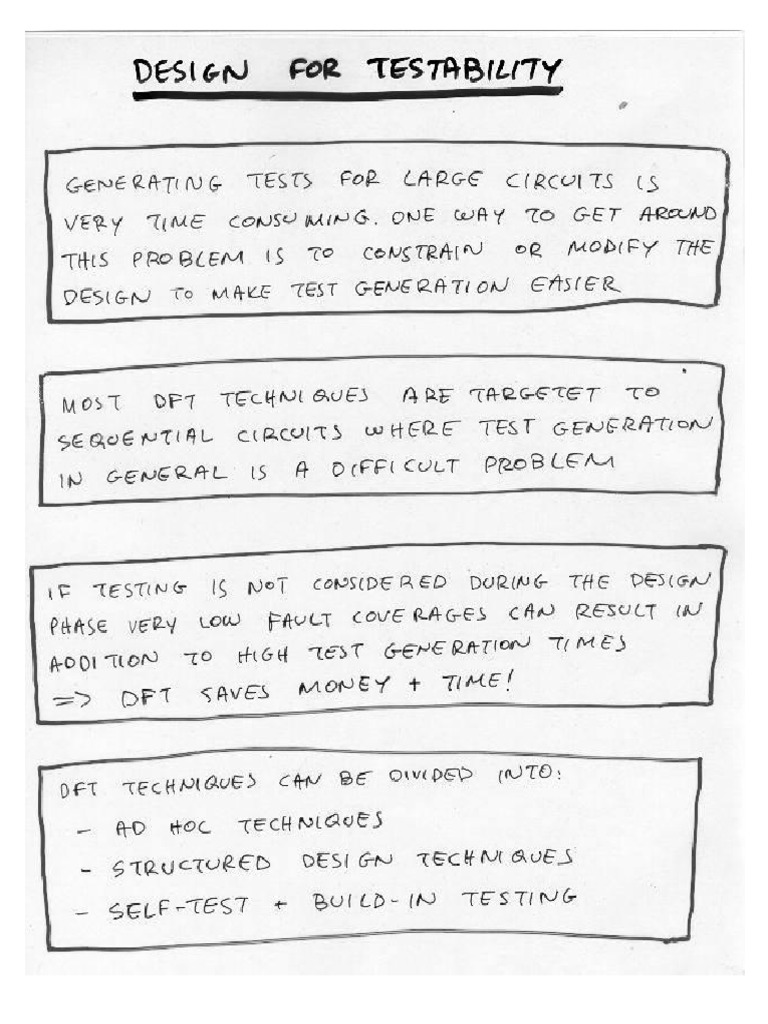 DESIGN FOR TESTABILITY
GENERATING TESTS FOR LARGE CIRCUITS IS
VERY TIME CONSUMING. ONE WAY TO GET AROUND
THIS PROBLEM IS TO CONSTRAIN OR MODIFY THE
DESIGN TO MAKE TEST GENERATION EASIER
MOST DFT TECHNIQUES ARE TARGETET TO
SEQUENTIAL CIRCUITS WHERE TEST GENERATION
IN GENERAL IS A DIFFICULT PROBLEM
IF TESTING IS NOT CONSIDERED DURING THE DESIGN
PHASE VERY LOW FAULT COVERAGES CAN RESULT IN
ADDITION TO HIGH TEST GENERATION TIMES
=> DFT SAVES MONEY + TIME!
DFT TECHNIQUES CAN BE DIVIDED INTO:
- AD HOC TECHNIQUES
- STRUCTURED DESIGN TECHNIQUES
- SELF-TEST + BUILD-IN TESTING